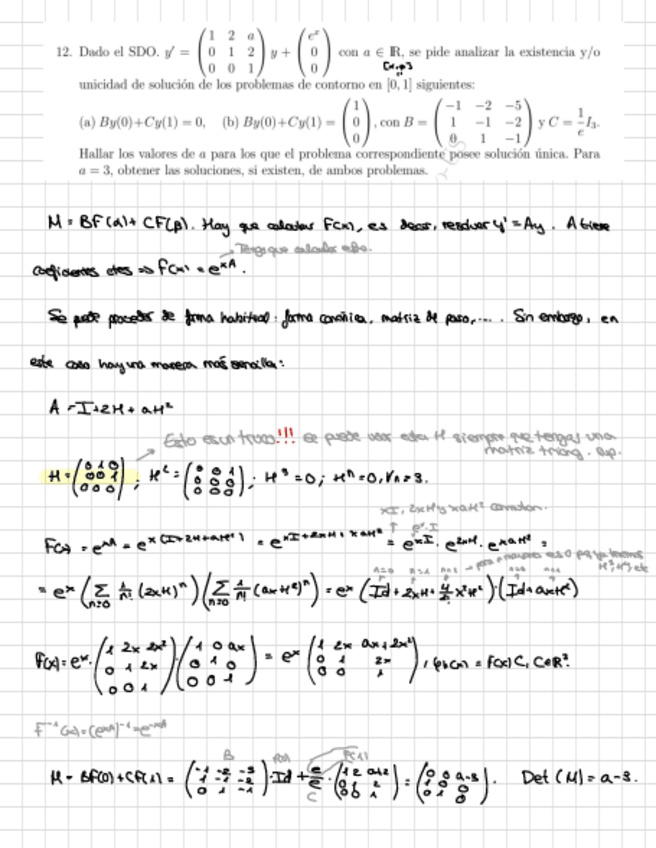 12. Dado el SDO. y' = ( 1 2 a / 0 1 2 / 0 0 1 ) y + ( e^x / 0 / 0 ) con a ∈ ℝ, se pide analizar la existencia y/o
[α,β]
unicidad de solución de los problemas de contorno en [0, 1] siguientes:
(a) By(0)+Cy(1) = 0, (b) By(0)+Cy(1) = ( 1 / 0 / 0 ), con B = ( -1 -2 -5 / 1 -1 -2 / 0 1 -1 ) y C = 1/e I₃.
Hallar los valores de a para los que el problema correspondiente posee solución única. Para
a = 3, obtener las soluciones, si existen, de ambos problemas.
M = BF(α) + CF(β). Hay que calcular F(x), es decir, resolver y' = Ay. A tiene
Tengo que calcular esto.
coeficientes ctes ⇒ F(x) = e^{xA}.
Se puede proceder de forma habitual: forma canónica, matriz de paso,... . Sin embargo, en
este caso hay una manera más sencilla:
A = I + 2H + aH²
Esto es un truco!!! se puede usar esta H siempre que tengas una
matriz triáng. sup.
H = ( 0 1 0 / 0 0 1 / 0 0 0 ); H² = ( 0 0 1 / 0 0 0 / 0 0 0 ); H³ = 0; Hⁿ = 0, ∀n ≥ 3.
xI, 2xH y xaH² conmutan.
F(x) = e^{xA} = e^{x(I+2H+aH²)} = e^{xI+2xH+xaH²} = e^{xI} · e^{2xH} · e^{xaH²} =
= e^x ( Σ_{n≥0} 1/n! (2xH)^n ) ( Σ_{n≥0} 1/n! (axH²)^n ) = e^x (Id + 2xH + 4/2 x²H²) · (Id + axH²)
F(x) = e^x · ( 1 2x 2x² / 0 1 2x / 0 0 1 ) ( 1 0 ax / 0 1 0 / 0 0 1 ) = e^x ( 1 2x ax+2x² / 0 1 2x / 0 0 1 ), φ_h(x) = F(x)C, C∈ℝ³.
F⁻¹(x) = (e^{xA})⁻¹ = e^{-xA}
B F(0) F(1)
M = BF(0) + CF(1) = ( -1 -2 -5 / 1 -1 -2 / 0 1 -1 ) · Id + e/e · ( 1 2 a+2 / 0 1 2 / 0 0 1 ) = ( 0 0 a-3 / 1 0 0 / 0 1 0 ). Det (M) = a-3.
C